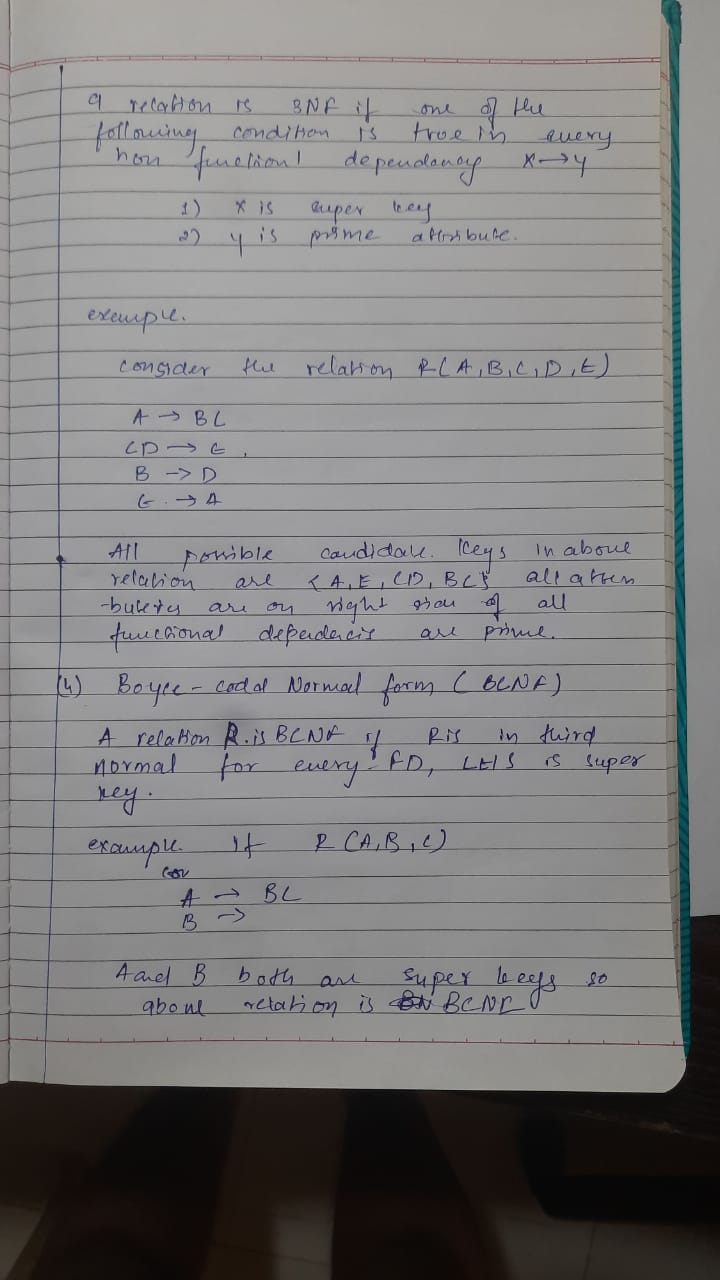 A relation is 3NF if one of the
following condition is true in every
non function! dependancy X→Y
1) X is super key
2) Y is prime attribute.
example.
consider the relation R(A,B,C,D,E)
A → BC
CD → E,
B → D
E → A
All possible candidate Keys in above
relation are {A,E,CD,BC} all atten
-butetes are on right sion of all
functional dependencis are prime.
(4) Boyce-codd Normal form (BCNF)
A relation R.is BCNF if R is in third
normal for every FD, LHS is super
key.
example If R (A,B,C)
A → BC
B →
A and B both are super keys so
above relation is BCNF